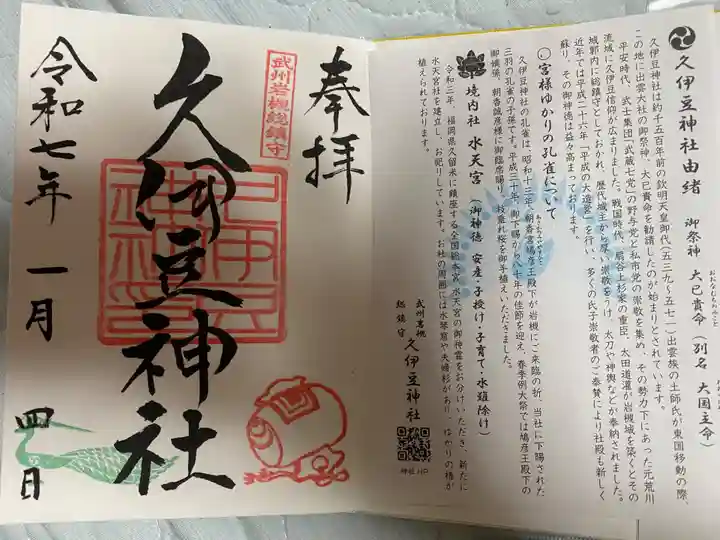 久伊豆神社由緒 御祭神 大己貴命(別名 大国主命)
おおなむちのみこと
久伊豆神社は約千五百年前の欽明天皇御代(五三九〜五七一)出雲族の土師氏が東国移動の際、
この地に出雲大社の御祭神、大己貴命を勧請したのが始まりとされています。
平安時代、武士集団「武蔵七党」の野与党と私市党の崇敬を集め、その勢力下にあった元荒川
流域に久伊豆信仰が広まりました。戦国時代、扇谷上杉家の重臣、太田道灌が岩槻城を築くとその
城郭内に総鎮守としておかれ、歴代城主から厚い崇敬をうけ、太刀や神輿などが奉納されました。
近年では平成二十六年「平成の大造営」を行い、多くの氏子崇敬者のご奉賛により社殿も新しく
蘇り、その御神徳は益々高まっております。
宮様ゆかりの孔雀について
久伊豆神社の孔雀は、昭和十三年、朝香宮鳩彦王殿下が岩槻にご来臨の折、当社に下賜された
三羽の孔雀の子孫です。平成三十年、御下賜から八十年の佳節を迎え、春季例大祭では鳩彦王殿下の
御嫡孫、朝香誠彦様に御臨席賜り、枝垂れ桜を御手植えいただきました。
境内社 水天宮(御神徳 安産・子授け・子育て・水難除け)
令和三年、福岡県久留米に鎮座する全国総本宮 水天宮の御神霊をお分けいただき、新たに
水天宮社を建立し、お祀りしています。お社の周囲には水琴窟や夫婦杉があり、ゆかりの椿が
植えられております。
武州岩槻
総鎮守 久伊豆神社
神社HP
奉拝
武州岩槻総鎮守
久伊豆神社
令和七年 一月 四日